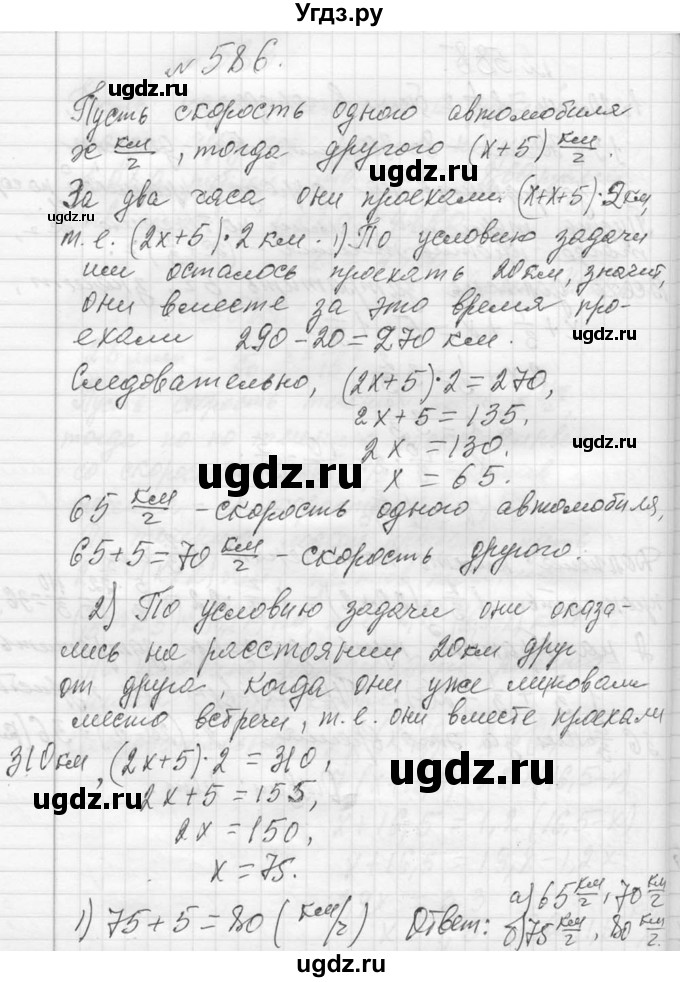 Угдз.ру
№ 586.
Пусть скорость одного автомобиля
x км/ч, тогда другого (x+5) км/ч.
За два часа они проехали (x+x+5)·2км,
т.е. (2x+5)·2км. 1) По условию задачи
им осталось проехать 20км, значит,
они вместе за это время про-
ехали 290-20=270 км.
Следовательно, (2x+5)·2=270,
2x+5=135.
2x=130.
x=65.
65 км/ч - скорость одного автомобиля,
65+5=70 км/ч - скорость другого.
2) По условию задачи они оказа-
лись на расстоянии 20км друг
от друга, когда они уже миновали
место встречи, т.е. они вместе проехали
310км, (2x+5)·2=310,
2x+5=155,
2x=150,
x=75.
1) 75+5=80 (км/ч)
Ответ: а) 65 км/ч, 70 км/ч
б) 75 км/ч, 80 км/ч.
ugdz.ru
ugdz.ru
ugdz.ru
ugdz.ru
ugdz.ru
ugdz.ru
ugdz.ru
ugdz.ru
ugdz.ru
ugdz.ru
ugdz.ru
ugdz.ru
ugdz.ru
ugdz.ru